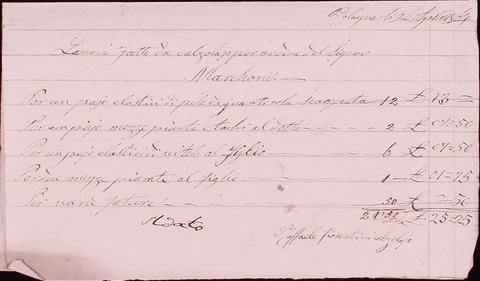 Bologna li 20 Agosto
Lavori fatti da calzolajo per ordine del Signor
Marchoni
Per un pajo elastici di pele da guanti cola 12 £ 13 =
Per un pajo mezze piante e tachi al detto 2 £ 02=50
Per un pajo elastici di vitelo al figlio 6 £ 07=50
Per due mezze piante al figlio 1 £ 01=75
Per varie fature 50 £ =50
21:50 £ 25=25
Saldato
Raffaele Fiorentini calzolajo